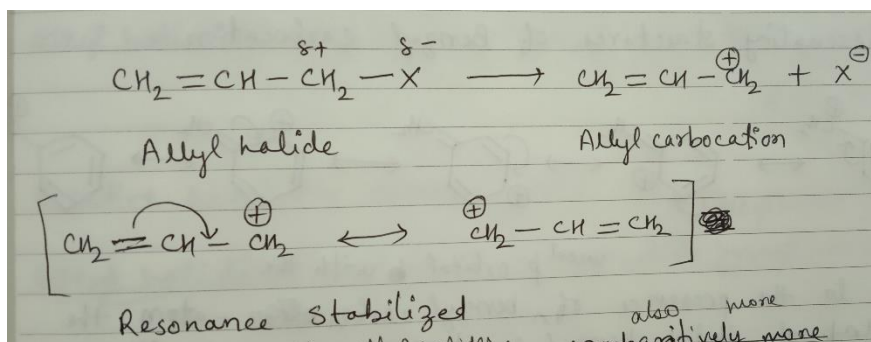 δ+ δ-
CH₂=CH-CH₂-X ⟶ CH₂=CH-CH₂⊕ + X⊖
Allyl halide Allyl carbocation
[CH₂=CH-CH₂⊕ ⟷ ⊕CH₂-CH=CH₂]
Resonance Stabilized also more
comparatively more